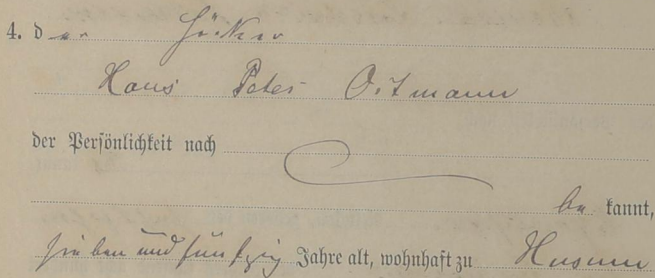 4. der Höker
Hans Peter Ortmann
der Persönlichkeit nach
be kannt,
sieben und fünfzig Jahre alt, wohnhaft zu Husum